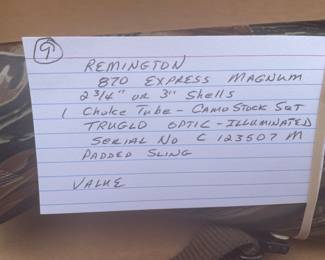 9
REMINGTON
870 EXPRESS MAGNUM
2 3/4" OR 3" Shells
1 Choke Tube - CAMO STOCK SET
TRUGLO OPTIC - ILLUMINATED
SERIAL NO C 123507 M
PADDED SLING
VALUE